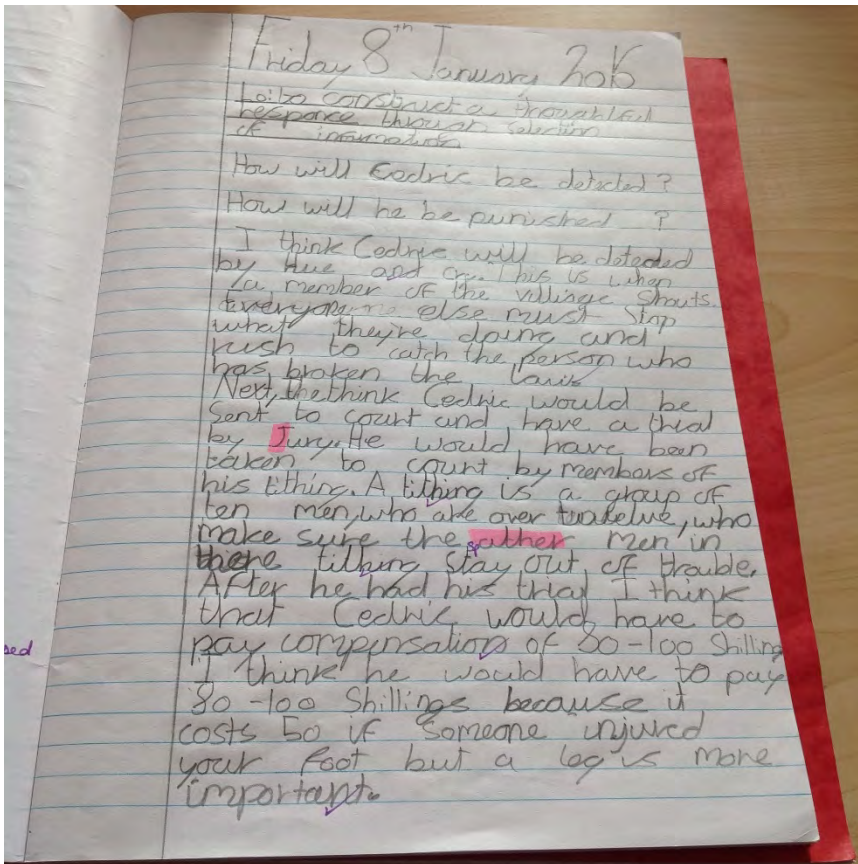 sed
Friday 8th January 2016
Lo: to construct a thoughtful
responce through selection
of information
How will Cedric be detected?
How will he be punished ?
I think Cedric will be detected
by Hue and cry. This is when
a member of the village shouts.
Everyone else must stop
what they're doing and
rush to catch the person who
has broken the laws
Next, think Cedric would be
sent to court and have a trial
by Jury. He would have been
taken to court by members of
his tithing. A tithing is a group of
ten men, who are over twelve, who
make sure the other men in
there tithing stay out of trouble.
After he had his trial I think
that Cedric would have to
pay compensation of 80-100 Shilling
I think he would have to pay
80-100 Shillings because it
costs 50 if someone injured
your foot but a leg is more
important.